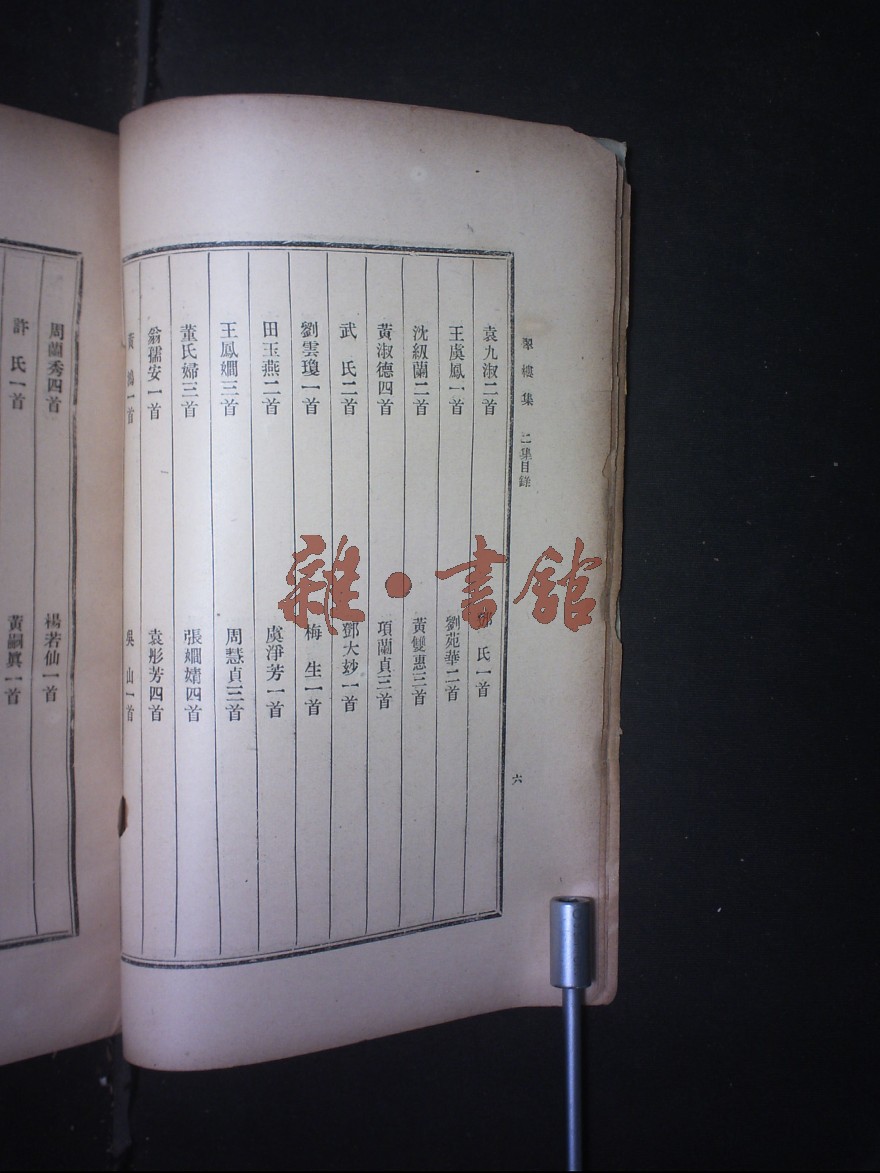 翠樓集 二集目錄
六
袁九淑二首
氏一首
王虞鳳一首
劉苑華二首
沈級蘭二首
黃雙惠三首
黃淑德四首
項蘭貞三首
武 氏二首
鄧大妙一首
劉雲瓊一首
梅 生一首
田玉燕二首
虞淨芳一首
王鳳嫻三首
周慧貞三首
董氏婦三首
張嫺婧四首
翁孺安一首
袁彤芳四首
黃 一首
吳 山一首
周蘭秀四首
楊若仙一首
許 氏一首
黃嗣眞一首
雜·書館